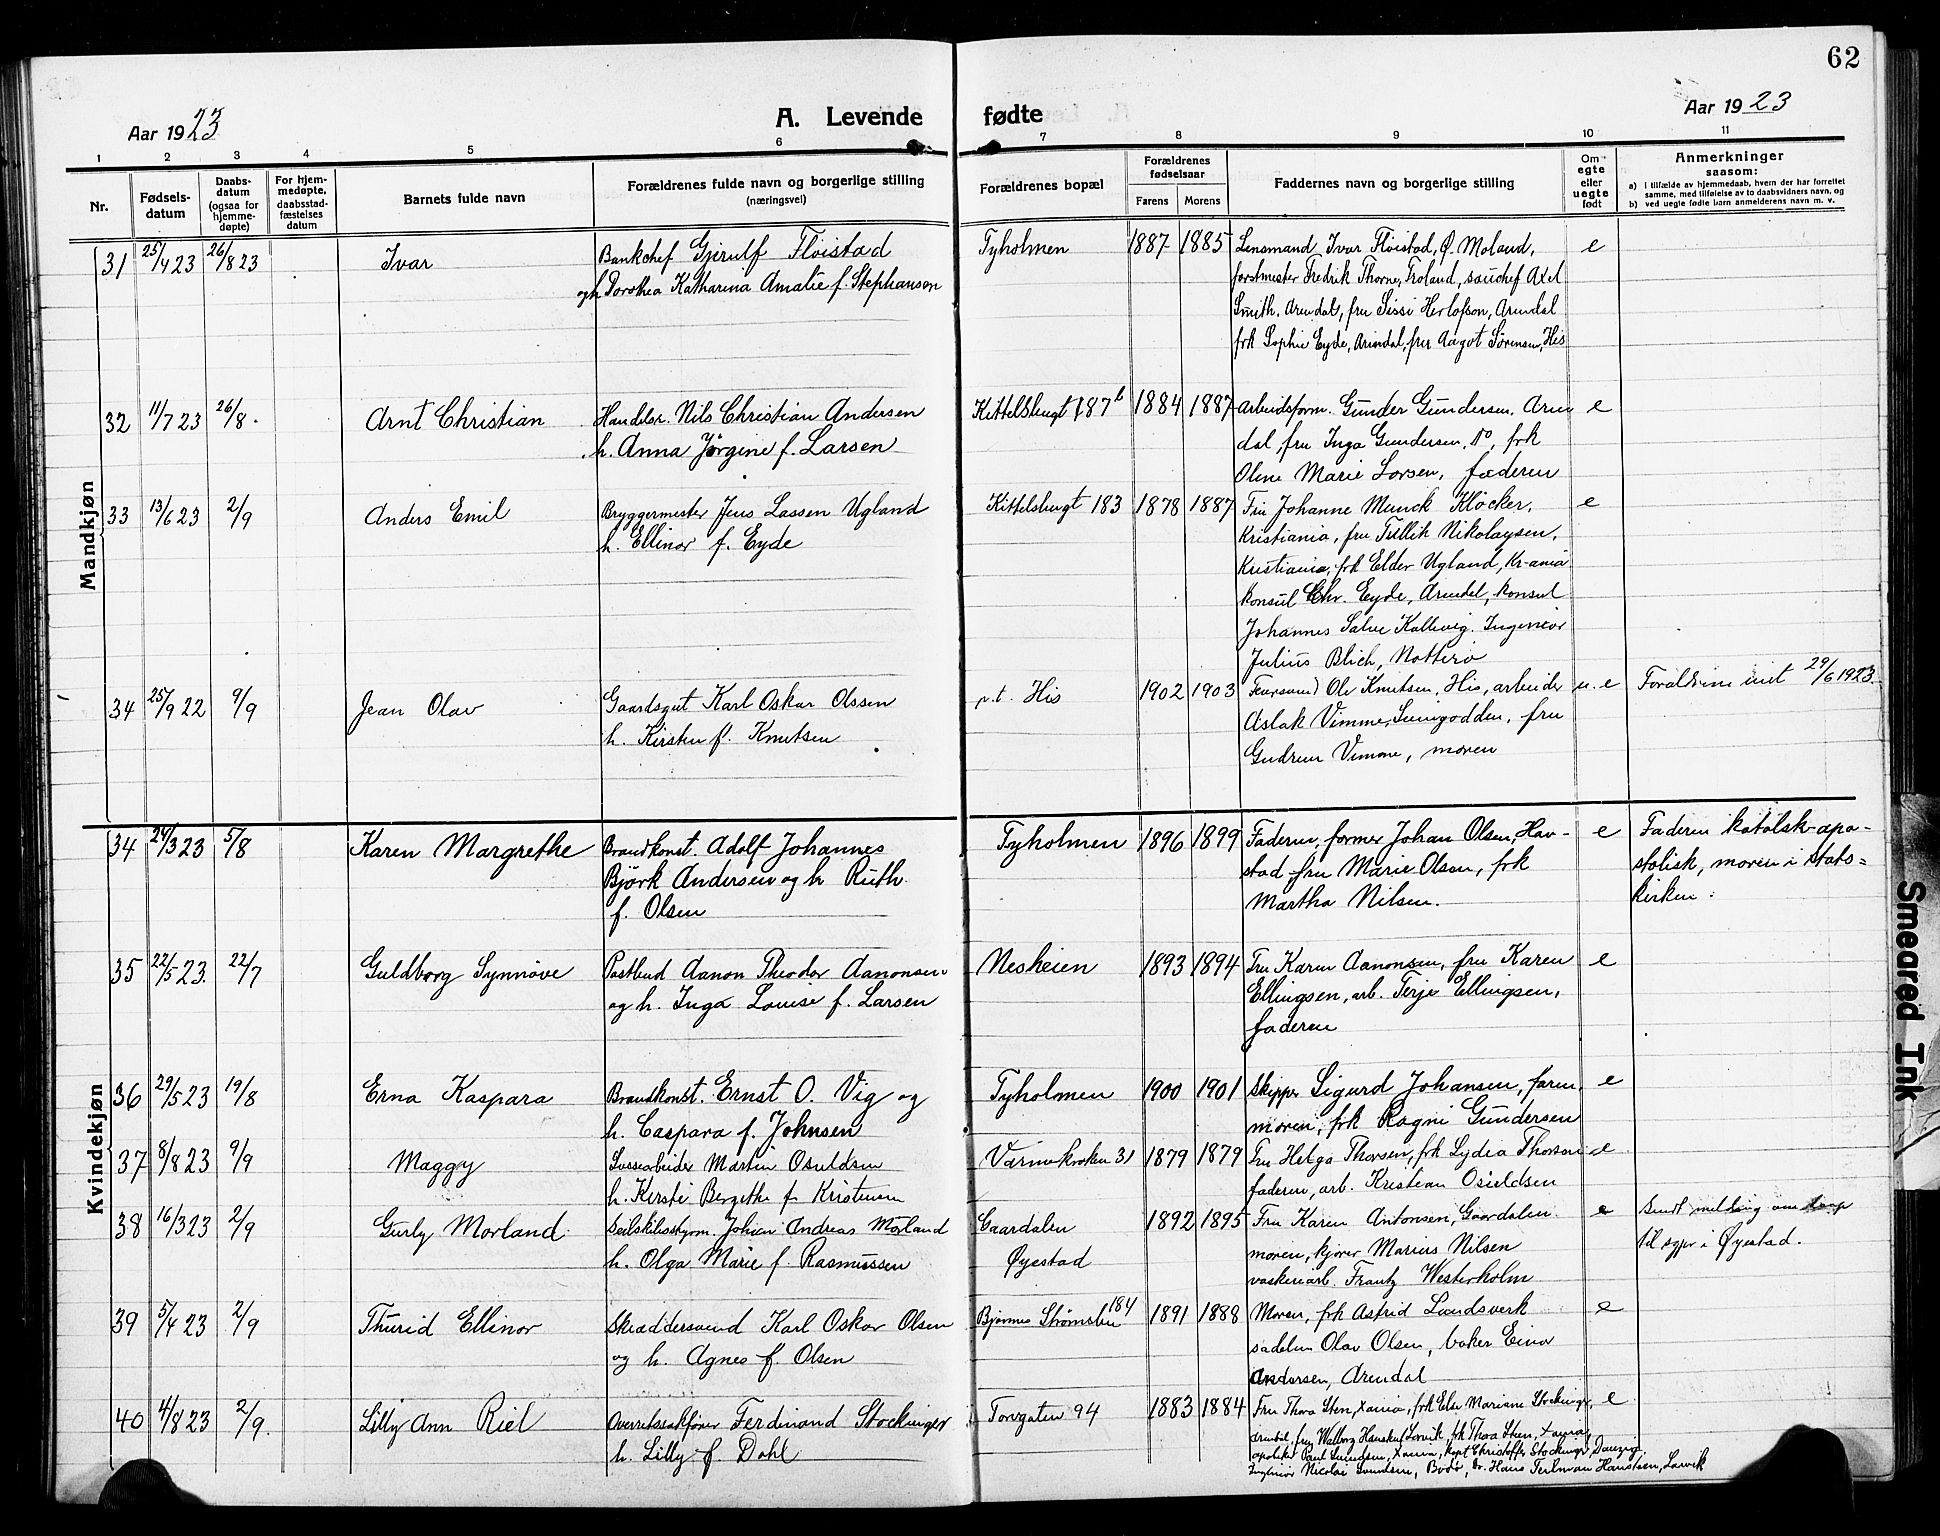 62
Aar 1923
A. Levende fødte
Aar 1923
1 2 3 4 5 6 7 8 9 10 11
Nr.
Fødsels-
datum
Daabs-
datum
(ogsaa for
hjemme-
døpte)
For hjem-
medøpte,
daabsstad-
fæstelses
datum
Barnets fulde navn
Forældrenes fulde navn og borgerlige stilling
(næringsvei)
Forældrenes bopæl
Forældrenes
fødselsaar
Farens Morens
Faddernes navn og borgerlige stilling
Om
egte
eller
uegte
født
Anmerkninger
saasom:
a) i tilfælde av hjemmedaab, hvem der har forrettet
samme, med tilføielse av to daabsvidners navn, og
b) ved uegte fødte barn anmelderens navn m. v.
Mandkjøn
31 25/4 23 26/8 23 Ivar
Bankchef Gjerulf Fløistad
og h. Dorothea Katharina Amalie f. Stephansen
Tyholmen 1887 1885
Lensmand Ivar Fløistad, Ø. Moland,
forstmester Fredrik Thorne, Froland, souchef Axel
Smith, Arendal, fru Sissi Herlofson, Arendal
frk Sophie Eyde, Arendal, fru Aagot Sørensen, His
e
32 11/7 23 26/8. Arnt Christian
Handelsr. Nils Christian Andersen
h. Anna Jörgine f. Larsen
Kittelsbugt 187 b 1884 1887
Arbeidsform. Gunder Gundersen, Aren
dal, fru Inga Gundersen, do, frk
Olene Marie Larsen, faderen
e
33 13/6 23 2/9 Anders Emil
Bryggermester Jens Lassen Ugland
h. Ellinor f. Eyde
Kittelsbugt 183 1878 1887
Fru Johanne Munck Klöcker,
Kristiania, fru Tullik Nikolaysen,
Kristiania, frk Elder Ugland, Kr-ania
konsul Chr. Eyde, Arendal, konsul
Johannes Salve Kallevig. Ingeniör
Julius Blich, Nötterö
e
34 25/9 22 9/9 Jean Olav
Gaardsgut Karl Oskar Olssen
h. Kirsten f. Knutsen
p.t. His 1902 1903
Ole Knutsen, His, arbeider
Aslak Vimme, fru
Gudrun Vimme, moren
u. e
Forældrene viet 29/6 1923.
Kvindekjøn
34 24/3 23 5/8 Karen Margrethe
Brandkonst. Adolf Johannes
Björk Andersen og h Ruth
f. Olsen
Tyholmen 1896 1899
Faderen, former Johan Olsen, Hav-
stad, fru Marie Olsen, frk
Martha Nilsen.
e
Faderen katolsk-apo-
stolisk, moren i stats=
kirken.
35 22/5 23. 22/7 Guldborg Synnøve
Postbud Aanon Theodor Aanonsen
og h. Inga Louise f. Larsen
Nesheien 1893 1894
Fru Karen Aanonsen, fru Karen
Ellingsen, arb. Terje Ellingsen,
faderen
e
36 29/5 23 19/8 Erna Kaspara
Brandkonst. Ernst O. Vig og
h. Caspara f. Johnsen
Tyholmen 1900 1901
Skipper Sigurd Johansen, faren,
moren, frk Ragni Gundersen
e
37 8/8 23 9/9 Maggy
Lossearbeider Martin Osuldsen
h. Kirsti Bergitte f. Kristensen
Varmekroken 31 1879 1879
Fru Helga Thorsen, frk Lydia Thorsen
faderen, arb. Kristian Osuldsen
e
38 16/3 23 2/9 Gurly Morland
Johan Andreas Mörland
h. Olga Marie f. Rasmussen
Gaardalen
Øyestad
1892 1895
Fru Karen Antonsen, Gaardalen
moren, kjører Marius Nilsen
vaskeriarb. Frantz Westerholm
e
Sendt melding om daap
til sgpr i Øyestad.
39 5/4 23 2/9 Thurid Ellinor
Skræddersvend Karl Oskar Olsen
og h. Agnes f. Olsen
Bjønnes Strømsbu 184 1891 1888
Moren, frk Astrid Landsverk
sadelm Olav Olsen, baker Einar
Andersen, Arendal
e
40 4/8 23 2/9. Lilly Ann Riel
Overretssakfører Ferdinand Stockinger
h. Lilly f. Dahl
Torvgaten 94 1883 1884
Fru Thora Sten, Xania, frk Else Mariane Stockinger,
Arendal, fru Walborg Hansteen Larvik, frk Thora Sten, Xania,
apoteker Paul Svendsen, Xania, kapt Christoffer Stockinger, Danzig.
Ingeniør Nicolai Svendsen, Bodø, Dr. Hans Teilman Hansteen, Larvik
e
Smeared Ink